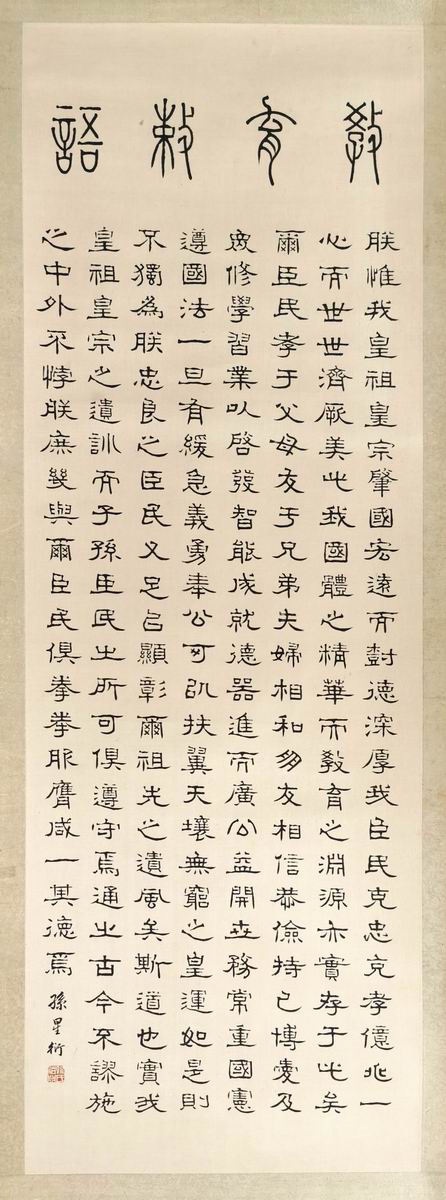 教育敕語
朕惟我皇祖皇宗肇國宏遠而尌德深厚我臣民克忠克孝億兆一
心而世世濟厥美此我國體之精華而教育之淵源亦實存于此矣
爾臣民孝于父母友于兄弟夫婦相和朋友相信恭儉持己博愛及
衆修學習業以啓發智能成就德器進而廣公益開世務常重國憲
遵國法一旦有緩急義勇奉公可以扶翼天壤無窮之皇運如是則
不獨為朕忠良之臣民又足以顯彰爾祖先之遺風矣斯道也實我
皇祖皇宗之遺訓而子孫臣民之所可俱遵守焉通之古今不謬施
之中外不悖朕庶幾與爾臣民俱拳拳服膺咸一其德焉
孫星衍